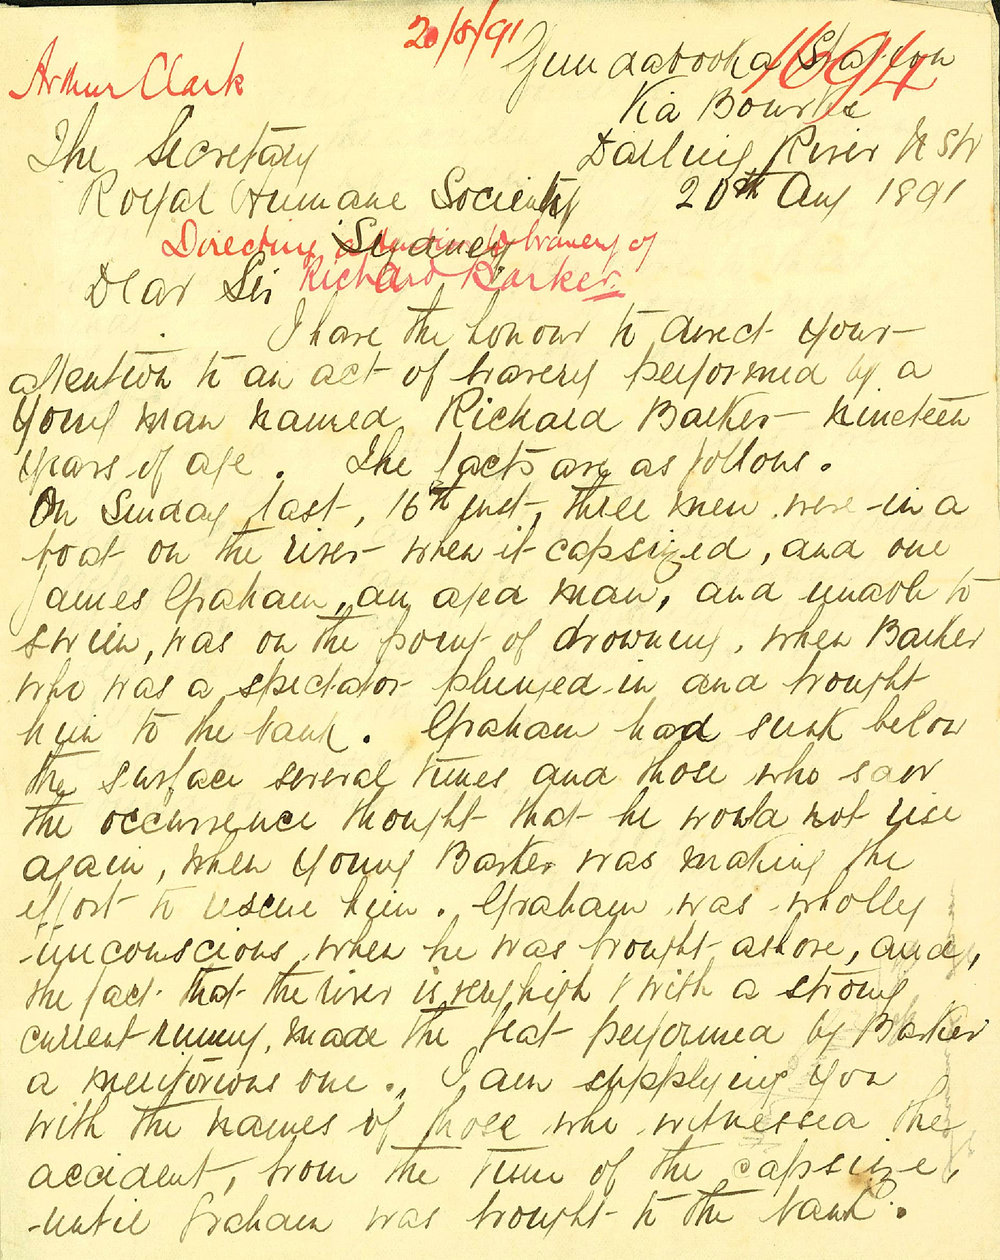 20/8/91
1694
Arthur Clark
Gundabooka Station
Via Bourke
Darling River NSW
20th Aug 1891
The Secretary
Royal Humane Society
Sydney
Directing attention to bravery of
Richard Barker
Dear Sir
I have the honour to direct your
attention to an act of bravery performed by a
young man named Richard Barker - nineteen
years of age. The facts are as follows.
On Sunday last, 16th inst, three men were in a
boat on the river when it capsized, and one
James Graham, an aged man, and unable to
swim, was on the point of drowning, when Barker
who was a spectator plunged in and brought
him to the bank. Graham had sunk below
the surface several times and those who saw
the occurrence thought that he would not rise
again, when young Barker was making the
effort to rescue him. Graham was wholly
unconscious when he was brought ashore, and,
the fact that the river is very high & with a strong
current running, made the feat performed by Barker
a meritorious one. I am supplying you
with the names of those who witnessed the
accident, from the time of the capsize,
until Graham was brought to the bank.